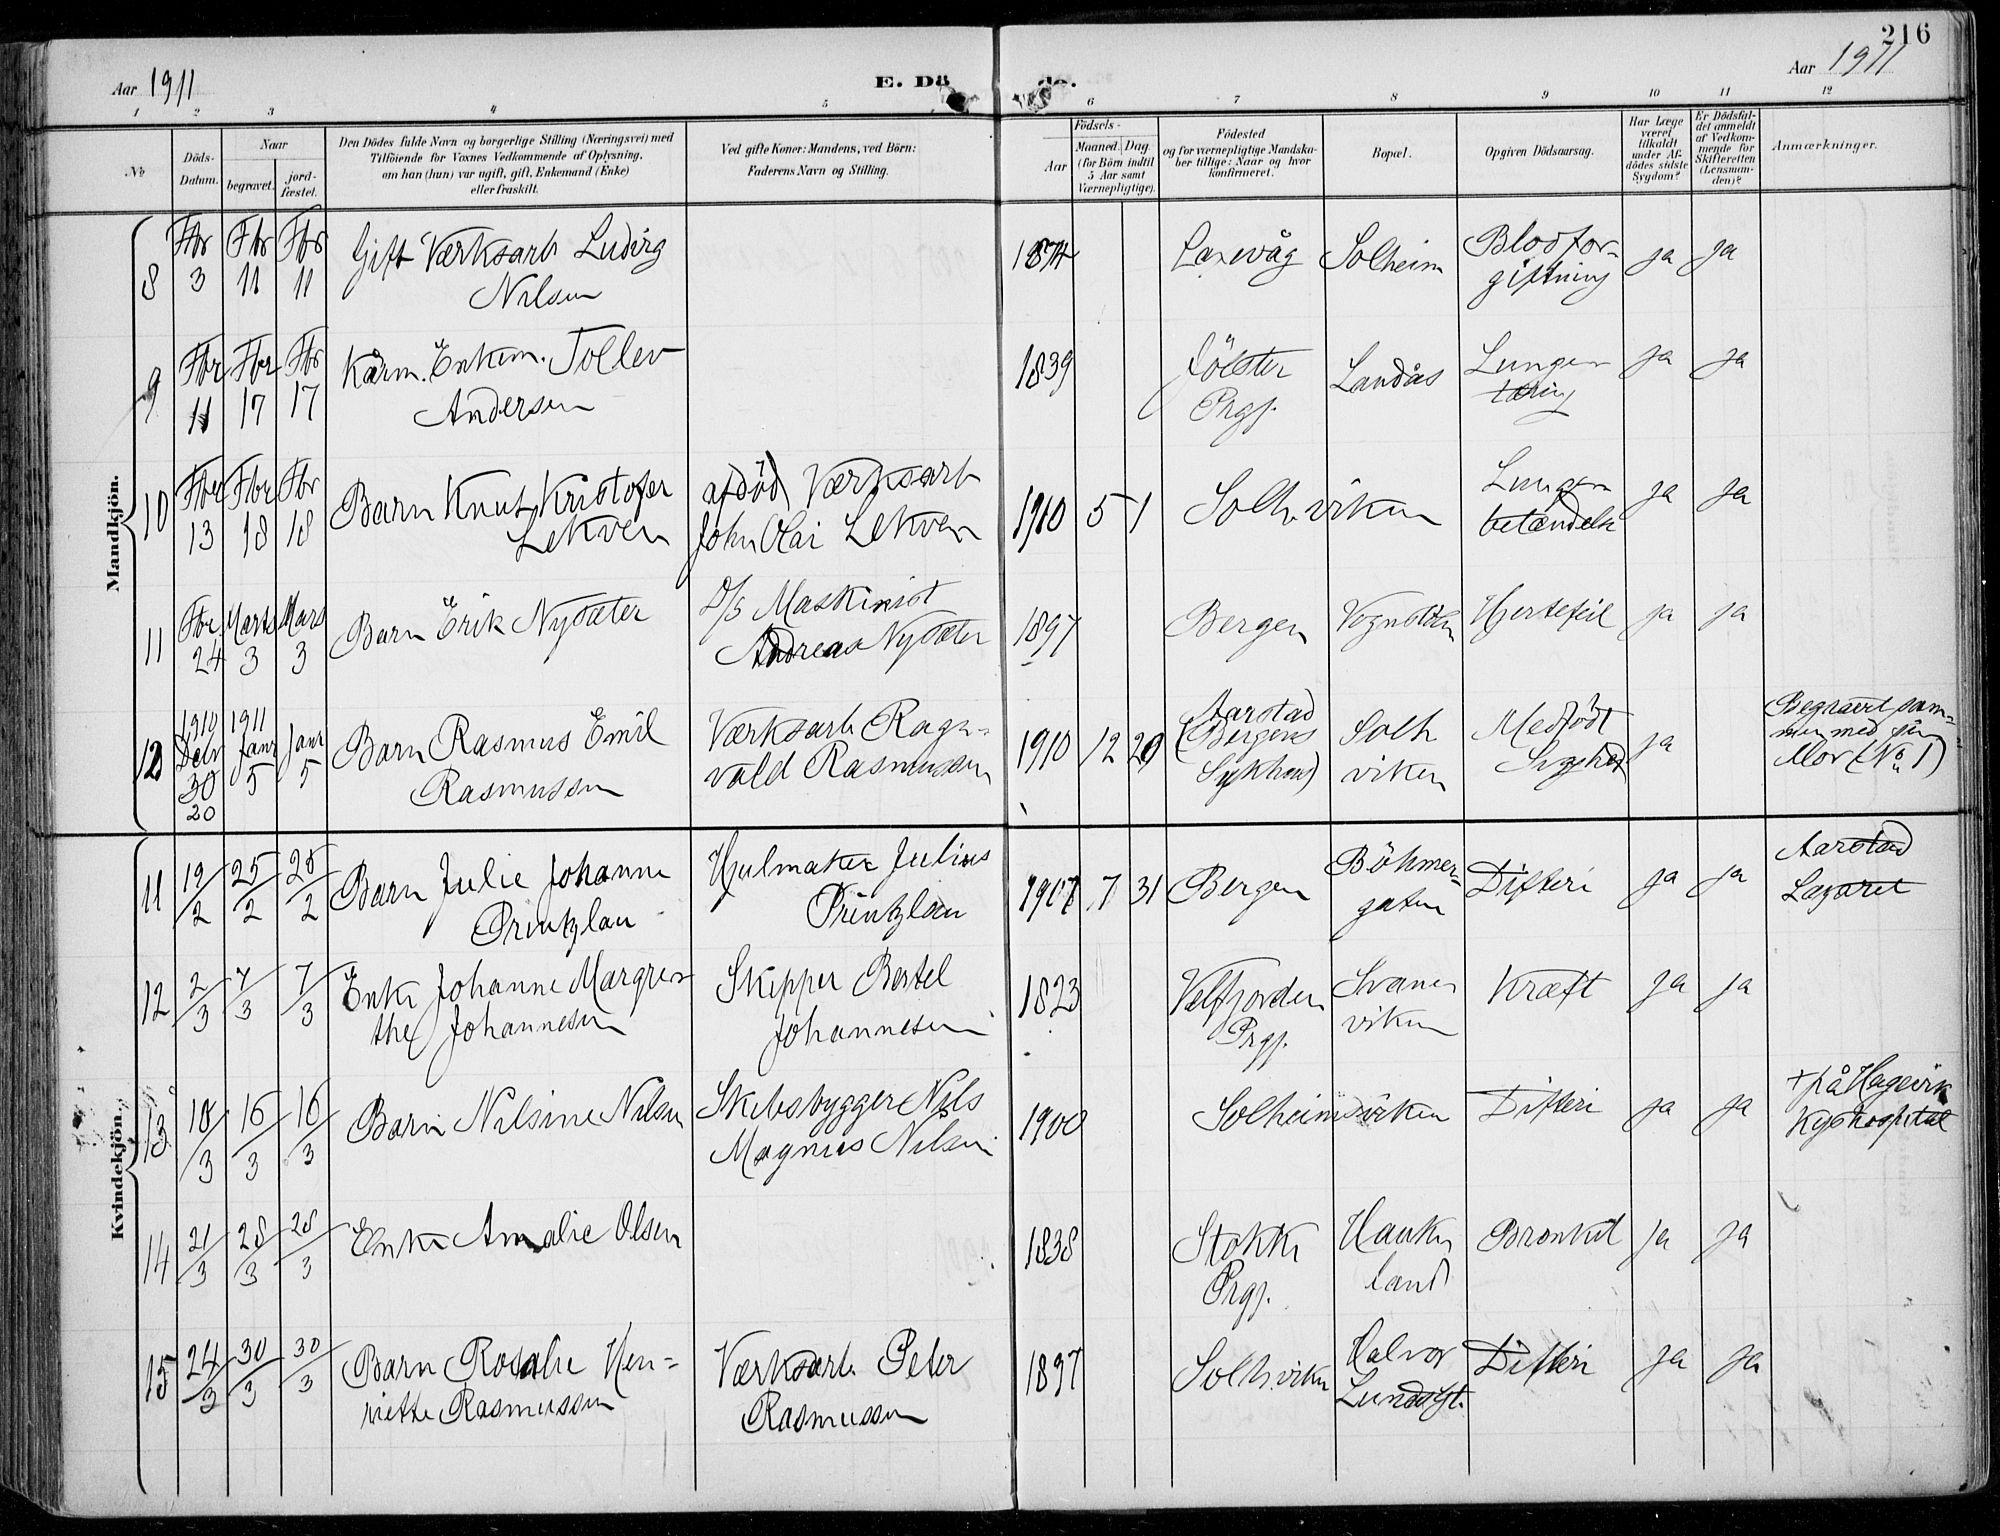 216
Aar 1911
E. Dö de.
Aar 1911
1 2 3 4 5 6 7 8 9 10 11 12
No
Döds-
Datum.
Naar
begravet.
jord-
fæstet.
Den Dödes fulde Navn og borgerlige Stilling (Næringsvei) med
Tilföiende for Voxnes Vedkommende af Oplysning,
om han (hun) var ugift, gift, Enkemand (Enke)
eller fraskilt.
Ved gifte Koner: Mandens, ved Börn:
Faderens Navn og Stilling.
Födsels-
Aar
Maaned.
Dag.
(for Börn indtil
5 Aar samt
Værnepligtige).
Födested
og for værnepligtige Mandska-
ber tillige: Naar og hvor
konfirmeret.
Bopæl.
Opgiven Dödsaarsag.
Har Læge
været
tilkaldt
under Af-
dödes sidste
Sygdom?
Er Dödsfal-
det anmeldt
af Vedkom-
mende for
Skifteretten
(Lensman-
den)?
Anmærkninger.
Mandkjön.
8 Fbr 3 Fbr 11 Fbr 11 Gift Værksarb Ludvig
Nilsen
1874 Laxevåg Solheim Blodfor-
giftning ja ja
9 Fbr 11 Fbr 17 Fbr 17 Kårm. Enkem. Tollev
Andersen
1839 Jölster
Prgj. Landås Lungen
tæring ja ja
10 Fbr 13 Fbr 18 Fbr 18 Barn Knut Kristofer
Lekven
afdöd Værksarb
John Olai Lekven
1910 5 1 Solh.viken Lungen
betændelse ja ja
11 Fbr 24 Marts 3 Mars 3 Barn Erik Nydæter
D/s Maskinist
Andreas Nydæter
1897 Bergen Hjertefeil ja ja
12 1910 Decbr 30 20 1911 Janr 5 Janr 5 Barn Rasmus Emil
Rasmussen
Værksarb Ragn-
vald Rasmussen
1910 12 20 Aarstad
(Bergens
Sykhus) Solh
viken Medfödt
Svaghed ja
Begravet sam-
men med sin
Mor (No 1)
Kvindekjön.
11 19/2 25/2 25/2 Barn Julie Johanne
Printzlau
Hjulmaker Julius
Printzlau
1907 7 31 Bergen Böhmer-
gaten Difteri ja ja Aarstad
Lazaret
12 2/3 7/3 7/3 Enke Johanne Margre-
the Johannesen
Skipper Bertel
Johannesen
1823 Velfjorden
Prgj. Svane
viken Kræft ja ja
13 10/3 16/3 16/3 Barn Nilsine Nilsen
Skibsbygger Nils
Magnus Nilsen
1900 Solheimsviken Difteri ja ja + på Hagevik
Kysthospital
14 21/3 28/3 28/3 Enke Amalie Olsen
1838 Stokke
Prgj. Hauke
land Bronkit ja ja
15 24/3 30/3 30/3 Barn Rosalie Hen-
riette Rasmussen
Værksarb. Peter
Rasmussen
1897 Solh.viken Halvor
Lundsgt. Difteri ja ja